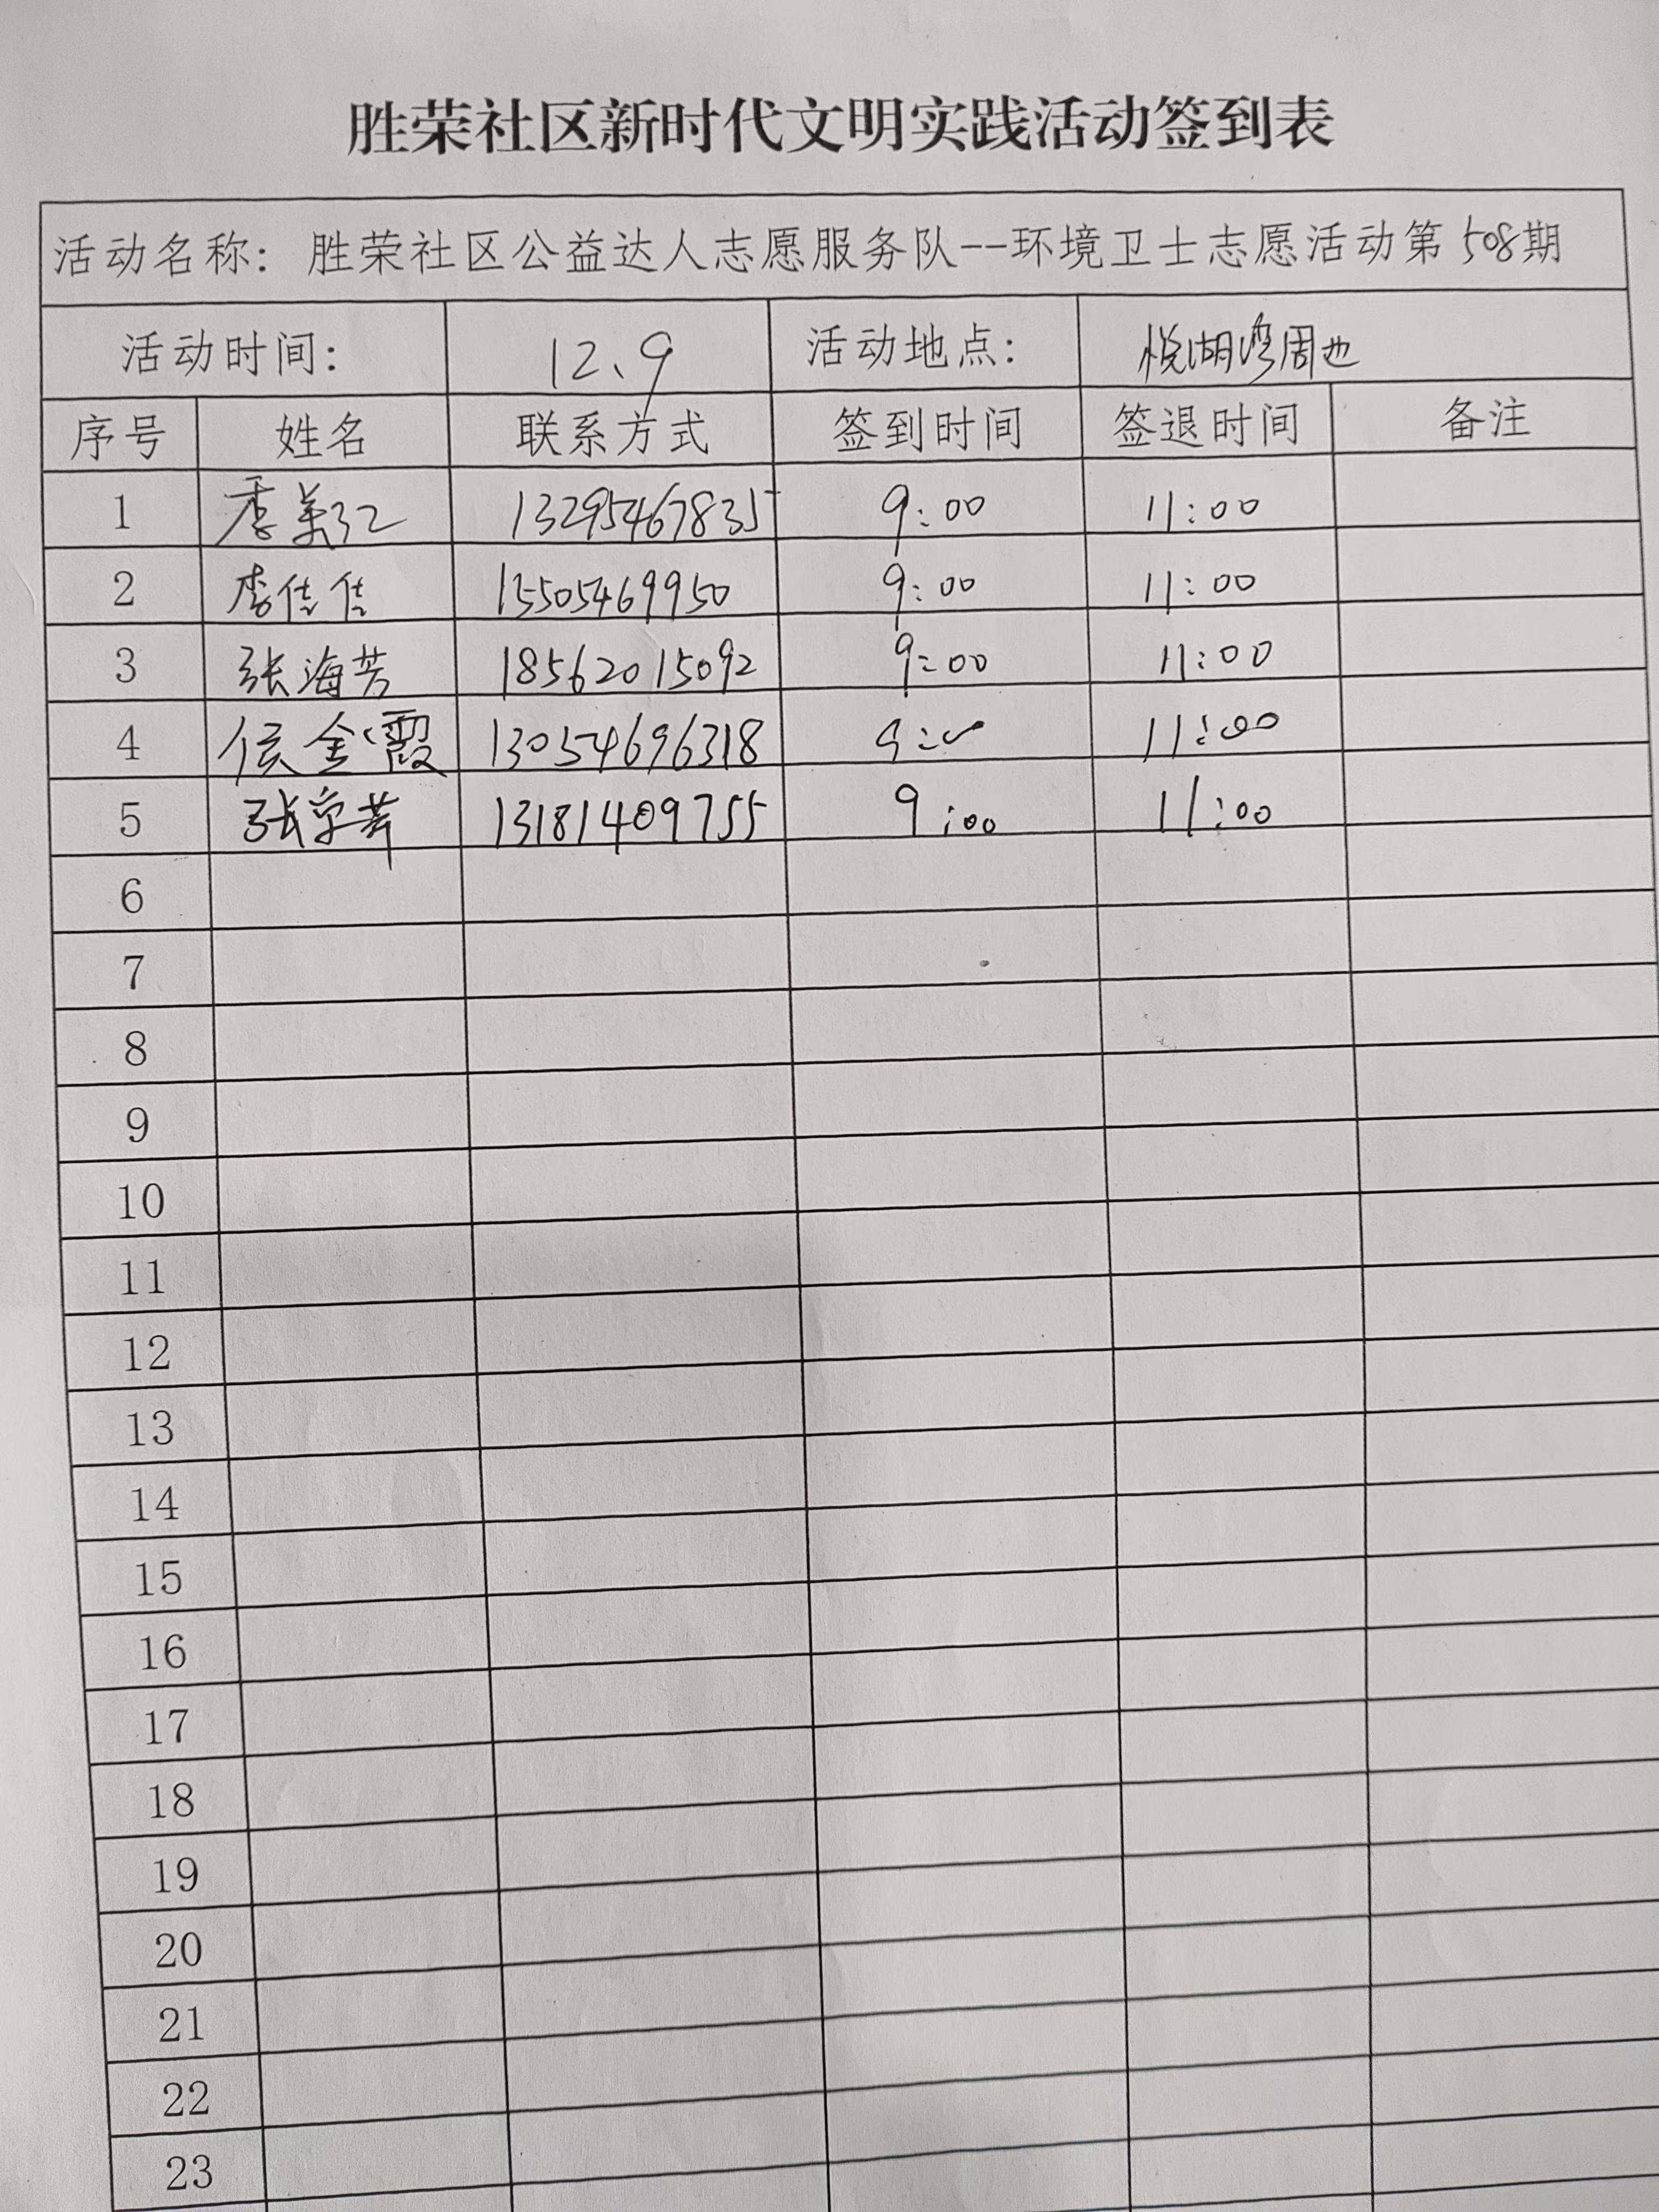 胜荣社区新时代文明实践活动签到表
活动名称：胜荣社区公益达人志愿服务队--环境卫士志愿活动第508期
活动时间： 12、9 活动地点： 悦湖湾周边
序号 姓名 联系方式 签到时间 签退时间 备注
1 13295467835 9:00 11:00
2 李佳佳 15505469950 9:00 11:00
3 张海芳 18562015092 9:00 11:00
4 侯金霞 13054696318 9:00 11:00
5 13181409755 9:00 11:00
6
7
8
9
10
11
12
13
14
15
16
17
18
19
20
21
22
23